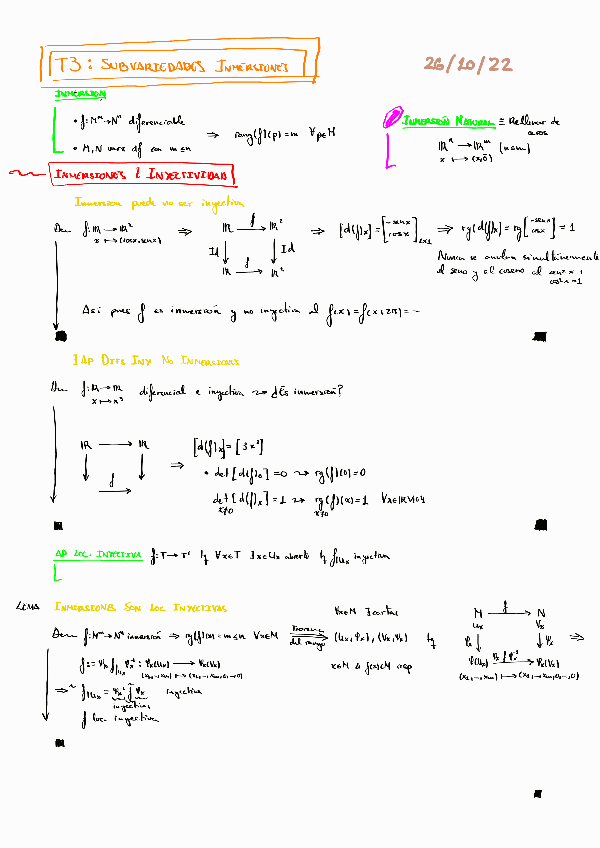 T3: SUBVARIEDADES INMERSIONES
26/10/22
INMERSION
• f: Mᵐ → Nⁿ diferenciable
• M, N vars df con m ≤ n
⇒ rang(f)(p) = m ∀p∈M
INMERSIÓN NATURAL ≡ Rellenar de ceros
ℝⁿ → ℝᵐ (n≤m)
x ↦ (x,0)
INMERSIONES E INYECTIVIDAD
Inmersion puede no ser inyectiva
Dem f: ℝ → ℝ²
x ↦ (cosx, senx)
⇒
ℝ f→ ℝ²
Id ↓ ↓ Id
ℝ f→ ℝ²
⇒ [d(f)x] = [-senx cosx]2x1 ⇒ rg(d(f)x) = rg[-senx cosx] = 1
Nunca se anulan simultáneamente
el seno y el coseno al sen²x +
cos²x = 1
Asi pues f es inmersión y no inyectiva al f(x) = f(x+2π) = …
∃ AP DIFS INY NO INMERSIONES
Dem f: ℝ → ℝ
x ↦ x³
diferencial e inyectiva ⇝ ¿Es inmersión?
ℝ → ℝ
f
⇒ [d(f)x] = [3x²]
• det[d(f)0] = 0 ⇝ rg(f)(0) = 0
det[d(f)x] = 1 ⇝ rg(f)(x) = 1 ∀x∈ℝ\{0}
x≠0 x≠0
AP LOC. INYECTIVA f: T → T' tq ∀x∈T ∃x∈Ux abierto tq f|Ux inyectiva
LEMA INMERSIONES SON LOC INYECTIVAS
Dem f: Mᵐ → Nⁿ inmersión ⇒ rg(f)(x) = m ≤ n ∀x∈M
Teorema del rango ⇒
∀x∈M ∃ cartas
(Ux, φx), (Vx, ψx) tq
x∈M & f(x)∈M resp
M f→ N
Ux Vx
φx ↓ ↓ ψx
φ(Ux) → ψx(Vx)
(x1,…,xm) ↦ (x1,…,xm,0,…,0)
⇒
(x1,…,xm) ↦ (x1,…,xm,0,…,0)
inyectiva
inyectivas
f loc inyectiva